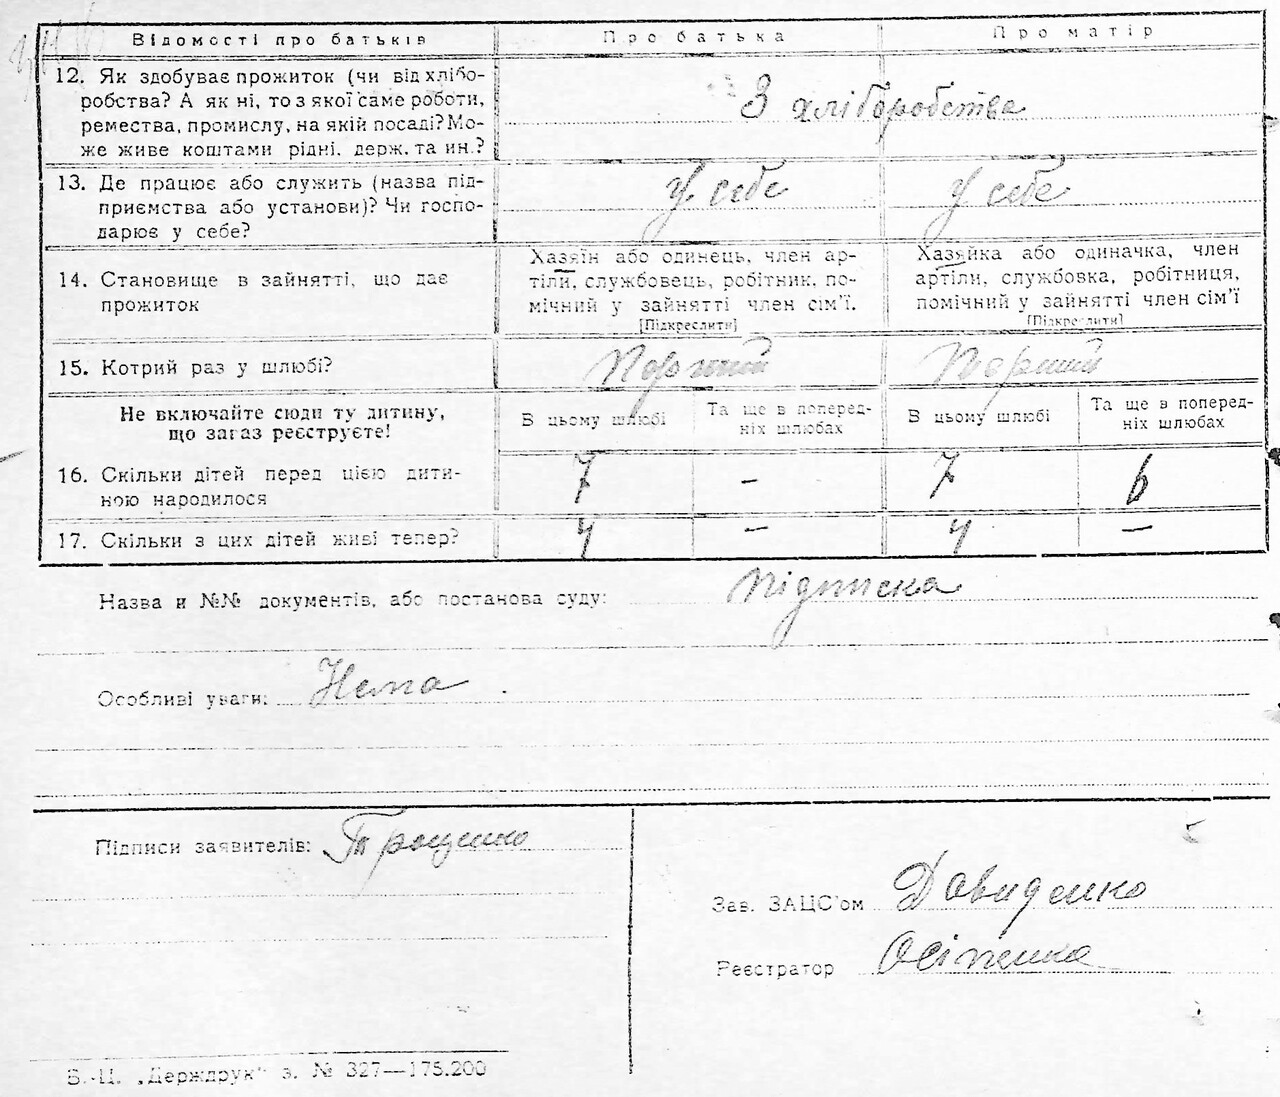 Відомості про батьків Про батька Про матір
12. Як здобуває прожиток (чи від хлібо-
робства? А як ні, то з якої саме роботи,
ремества, промислу, на якій посаді? Мо-
же живе коштами рідні, держ. та ин.?
З хліборобства
13. Де працює або служить (назва під-
приємства або установи)? Чи госпо-
дарює у себе?
У себе У себе
14. Становище в зайнятті, що дає
прожиток
Хазяїн або одинець, член ар-
тіли, службовець, робітник, по-
мічний у зайнятті член сім'ї.
[Підкреслити]
Хазяйка або одиначка, член
артіли, службовка, робітниця,
помічний у зайнятті член сім'ї
[Підкреслити]
15. Котрий раз у шлюбі? Перший Перший
Не включайте сюди ту дитину,
що зараз реєструєте!
В цьому шлюбі
Та ще в поперед-
ніх шлюбах
В цьому шлюбі
Та ще в поперед-
ніх шлюбах
16. Скільки дітей перед цією дити-
ною народилося
7 - 7
17. Скільки з цих дітей живі тепер? 4 — 4 —
Назва и №№ документів, або постанова суду: підписка
Особливі уваги: Нема
Підписи заявителів: Троценко
Зав. ЗАЦС'ом Давиденко
Реєстратор Осіпенко
Б.-Ц. „Держдрук" з. № 327—175.200